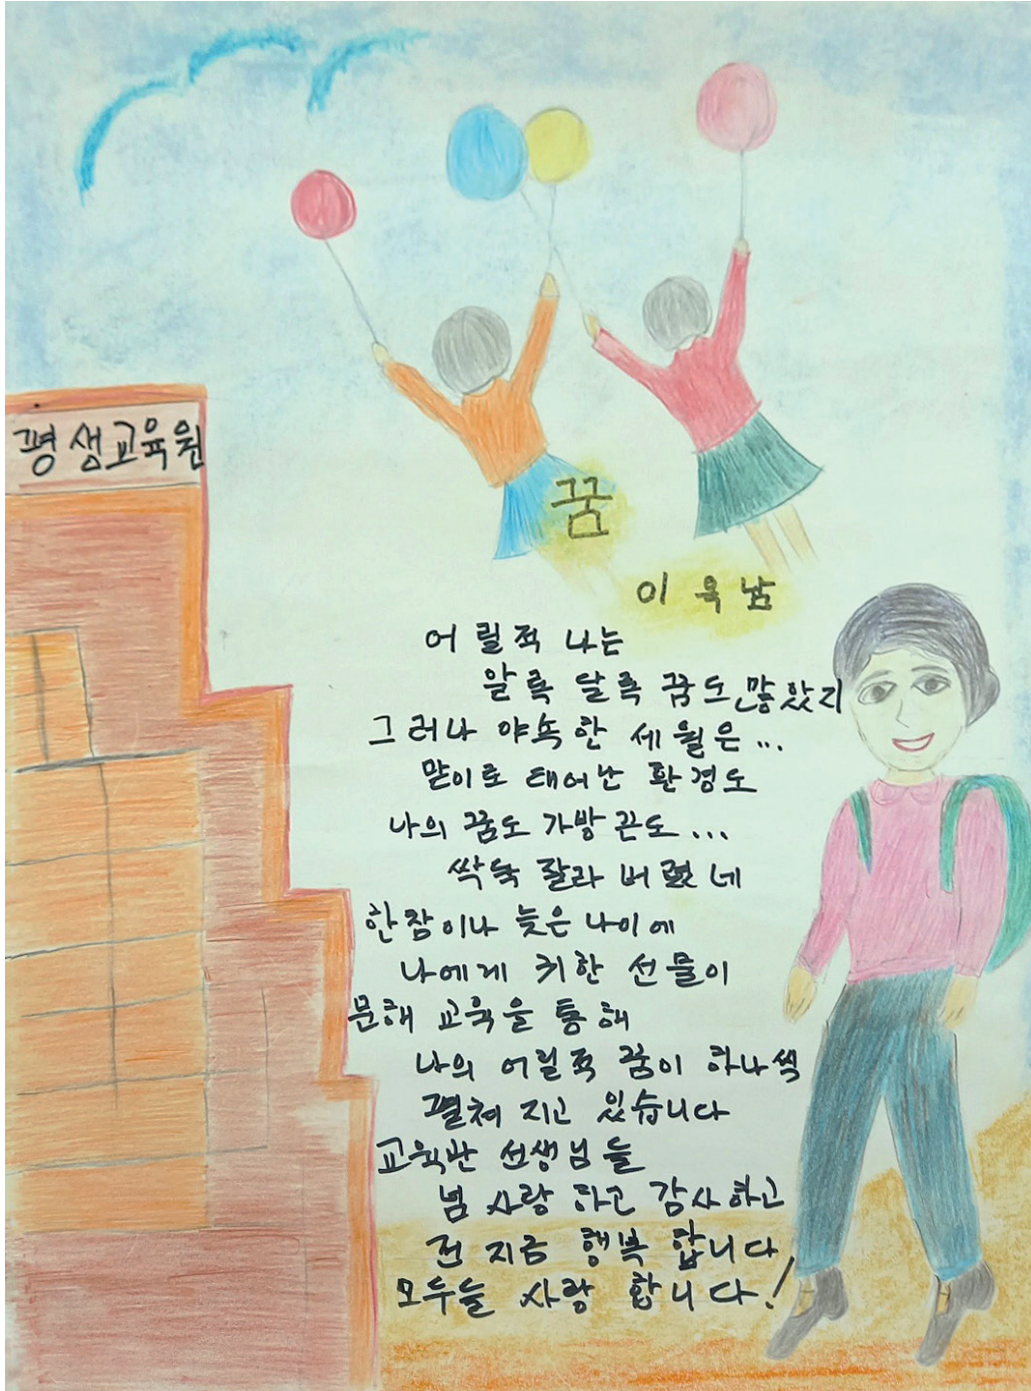 평생교육원
꿈
이육남
어릴적 나는
알록 달록 꿈도 많았지
그러나 야속한 세월은...
맏이로 태어난 환경도
나의 꿈도 가방끈도...
싹뚝 잘라 버렸네
한참이나 늦은 나이에
나에게 귀한 선물이
문해 교육을 통해
나의 어릴쩍 꿈이 하나씩
펼쳐 지고 있습니다
교육관 선생님들
넘 사랑 하고 감사하고
전 지금 행복 합니다
모두들 사랑 합니다!